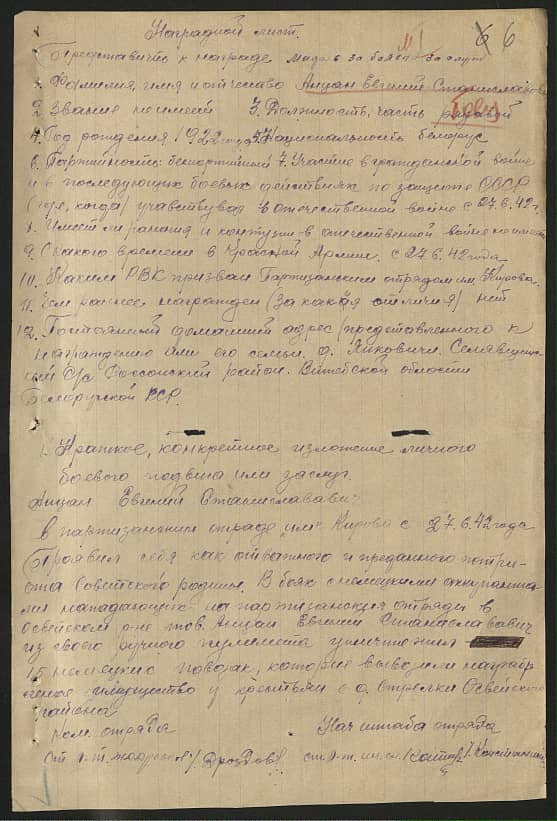 Наградной лист.
66
Представить к награде Медаль за боевые заслуги
М1
1. Фамилия, имя и отчество Анцан Евгений Станиславович
2. Звание не имеет 3. Должность, часть рядовой
боец
4. Год рождения 1922 года 5. Национальность белорус
6. Партийность: беспартийный 7. Участие в гражданской войне
и в последующих боевых действиях по защите СССР
(где, когда) учавствувал в отечественной войне с 27.6.42 г.
8. Имеет ли ранения и контузии в отечественной войне не имеет
9. С какого времени в Красной Армии. с 27.6.42 года
10. Каким РВК призван Партизанским отрядом им. Кирова.
11. Чем раннее награжден (за какая отличия) нет
12. Постоянный домашний адрес представленного к
награждению или его семьи. д. Янковичи.
с/с Россонский район. Витебской области
Белорусской ССР.
1. Краткое, конкретное изложение личного
боевого подвига или заслуг
Анцан Евгений Станиславави
в партизанским отряде "им" Кирова с 27.6.42 года
Проявил себя как отважного и преданного патри-
ота Советского родины. В боях с немецкими
нападающих на партизанския отряды в
Освейском р-не тов. Анцан Евгений Станиславович
из своего ручного пулемета уничтожил
15 немецких повозак, которые вывозили награб-
леное имущество у крестьян с д. Стрелки Освейского
района
Ком. отряда Нач штаба отряда
ст. л-т. /Дроздов/ ст. л-т. ин. сл.